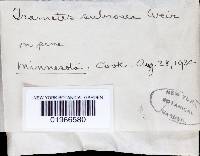 Trametes subrosea Weir
on pine
Minnesota. Cook. Aug. 28, 1930
NEW YORK BOTANICAL GARDEN
01366580
NEW YORK
BOTANICAL
GARDEN